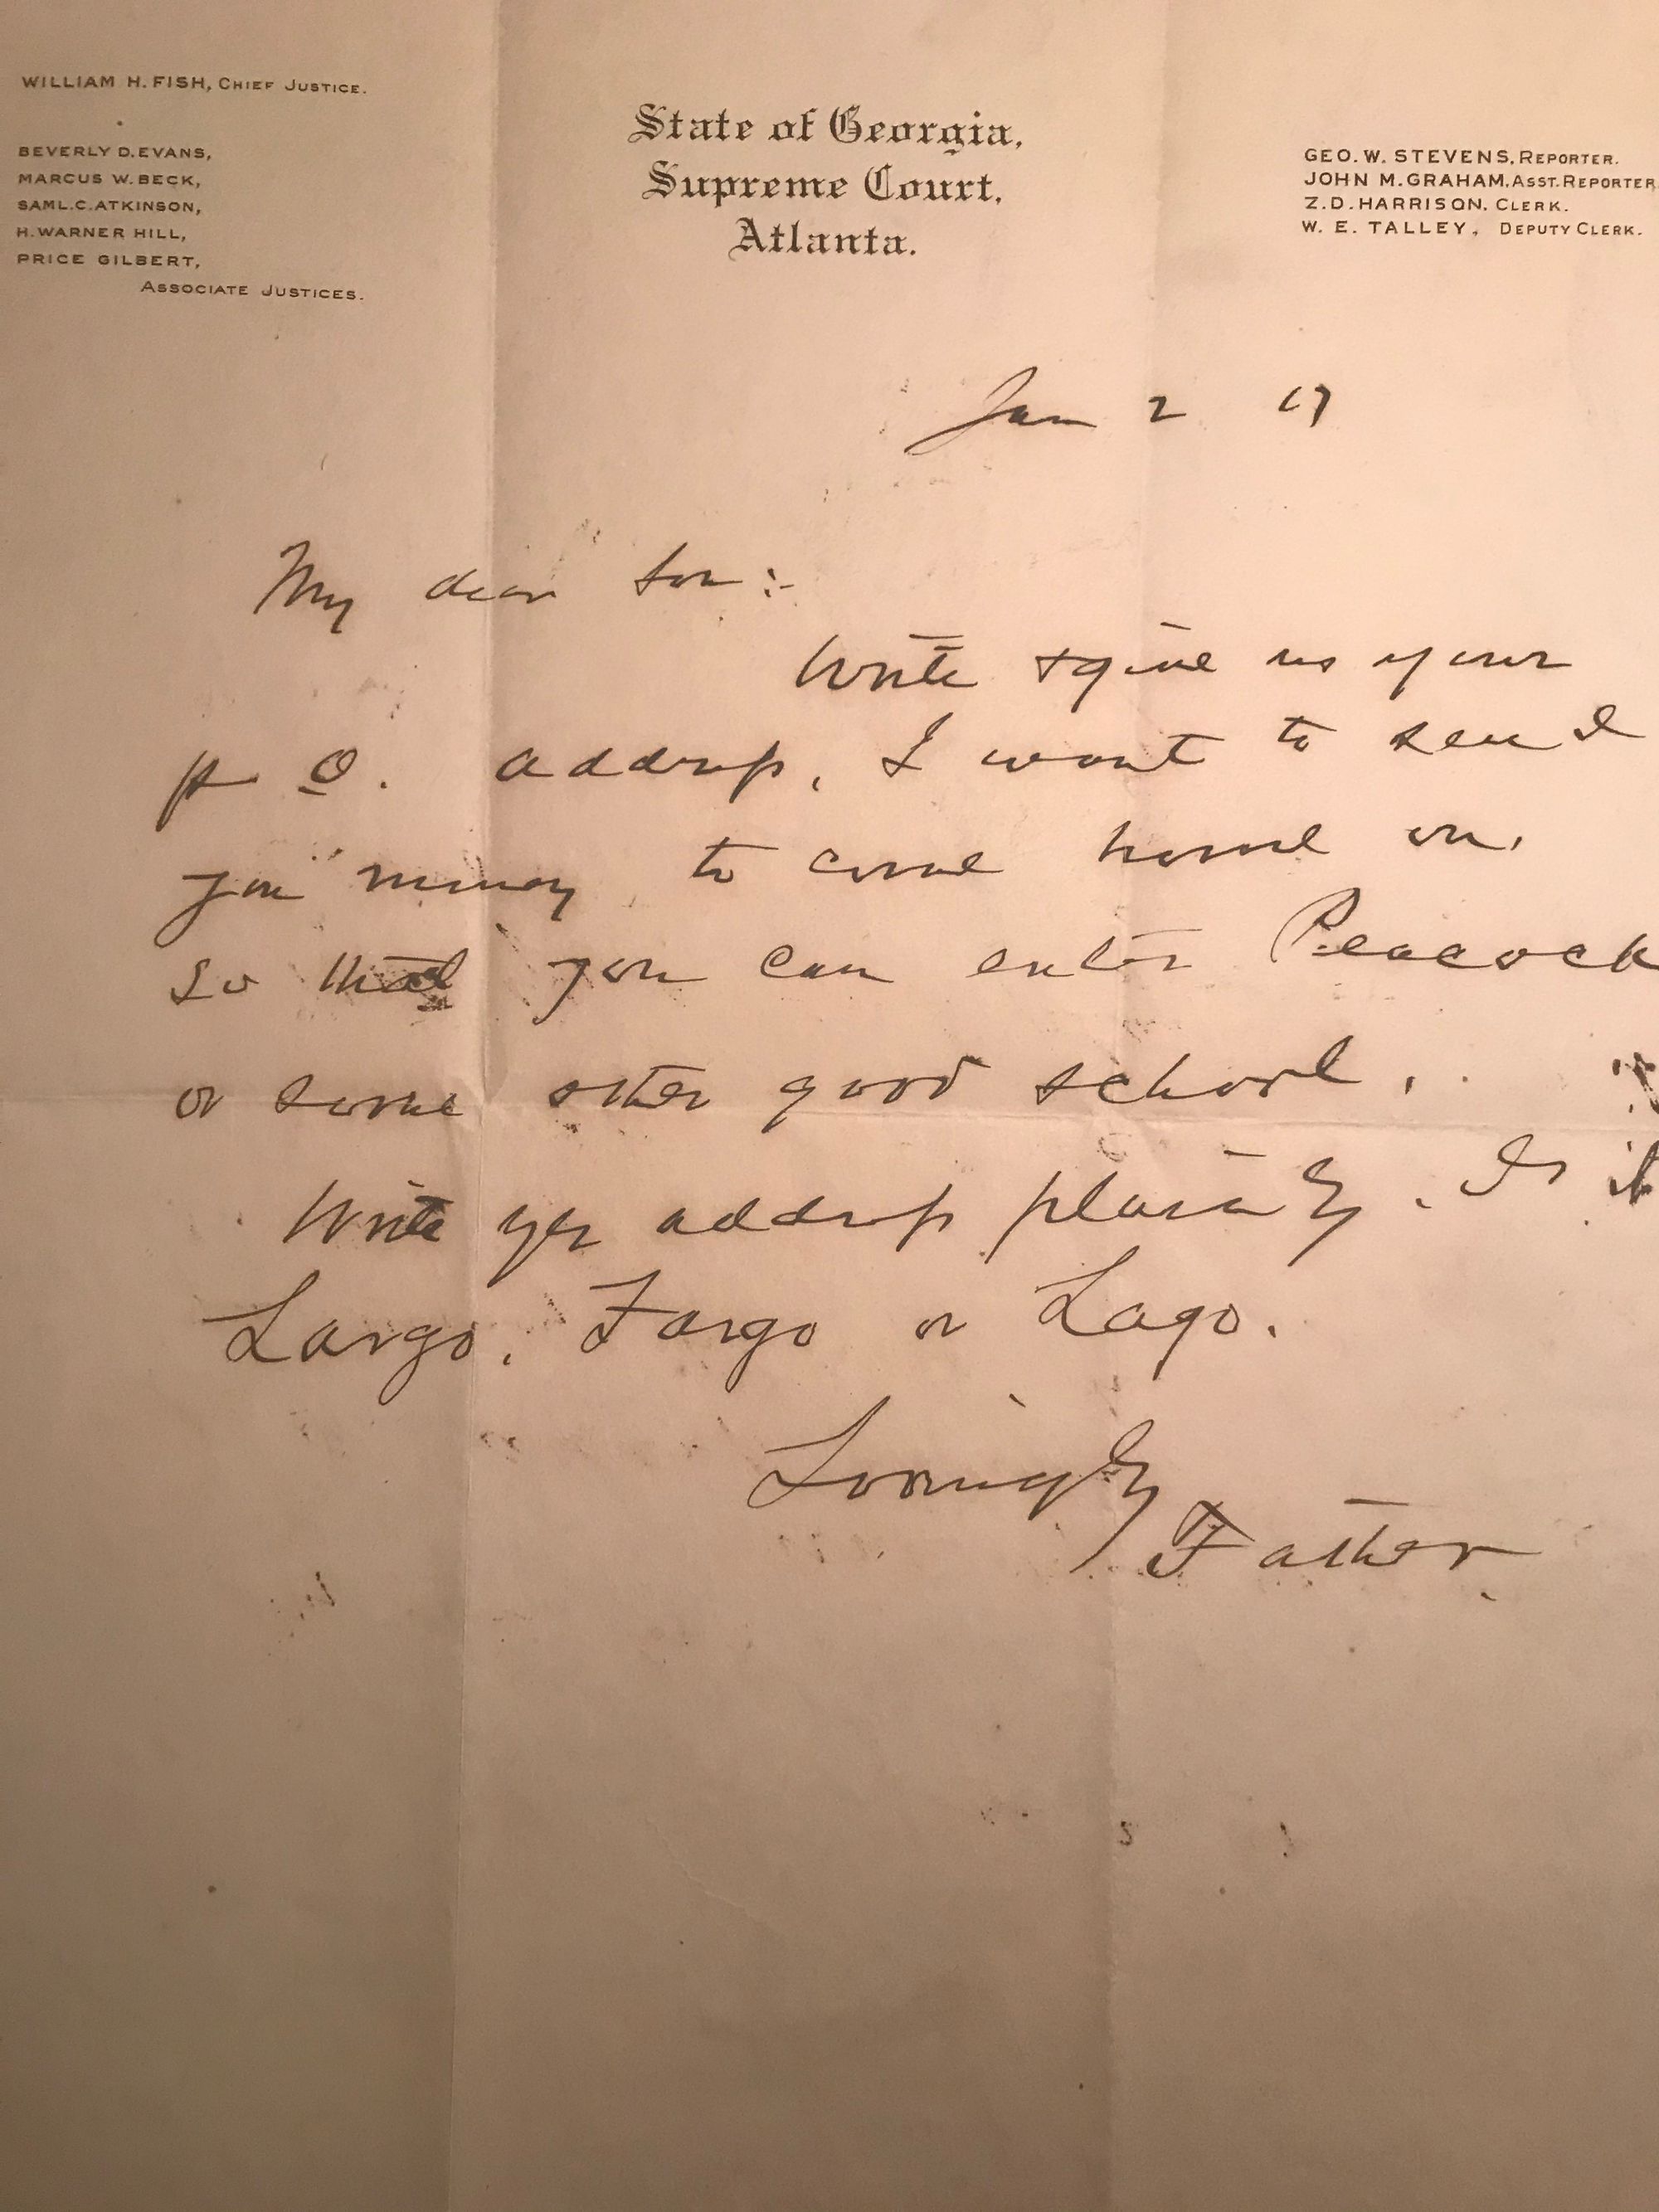 WILLIAM H. FISH, CHIEF JUSTICE.
BEVERLY D. EVANS,
MARCUS W. BECK,
SAML. C. ATKINSON,
H. WARNER HILL,
PRICE GILBERT,
ASSOCIATE JUSTICES.
State of Georgia,
Supreme Court,
Atlanta.
GEO. W. STEVENS, REPORTER.
JOHN M. GRAHAM, ASST. REPORTER
Z. D. HARRISON, CLERK.
W. E. TALLEY, DEPUTY CLERK.
Jan 2 17
My dear son:-
Write + give us your
p O. address, I want to send
you money to come home on.
so that you can enter Peacock
or some other good school.
Write yr address plainly. Is it
Largo, Fargo or Lago.
Lovingly
Father